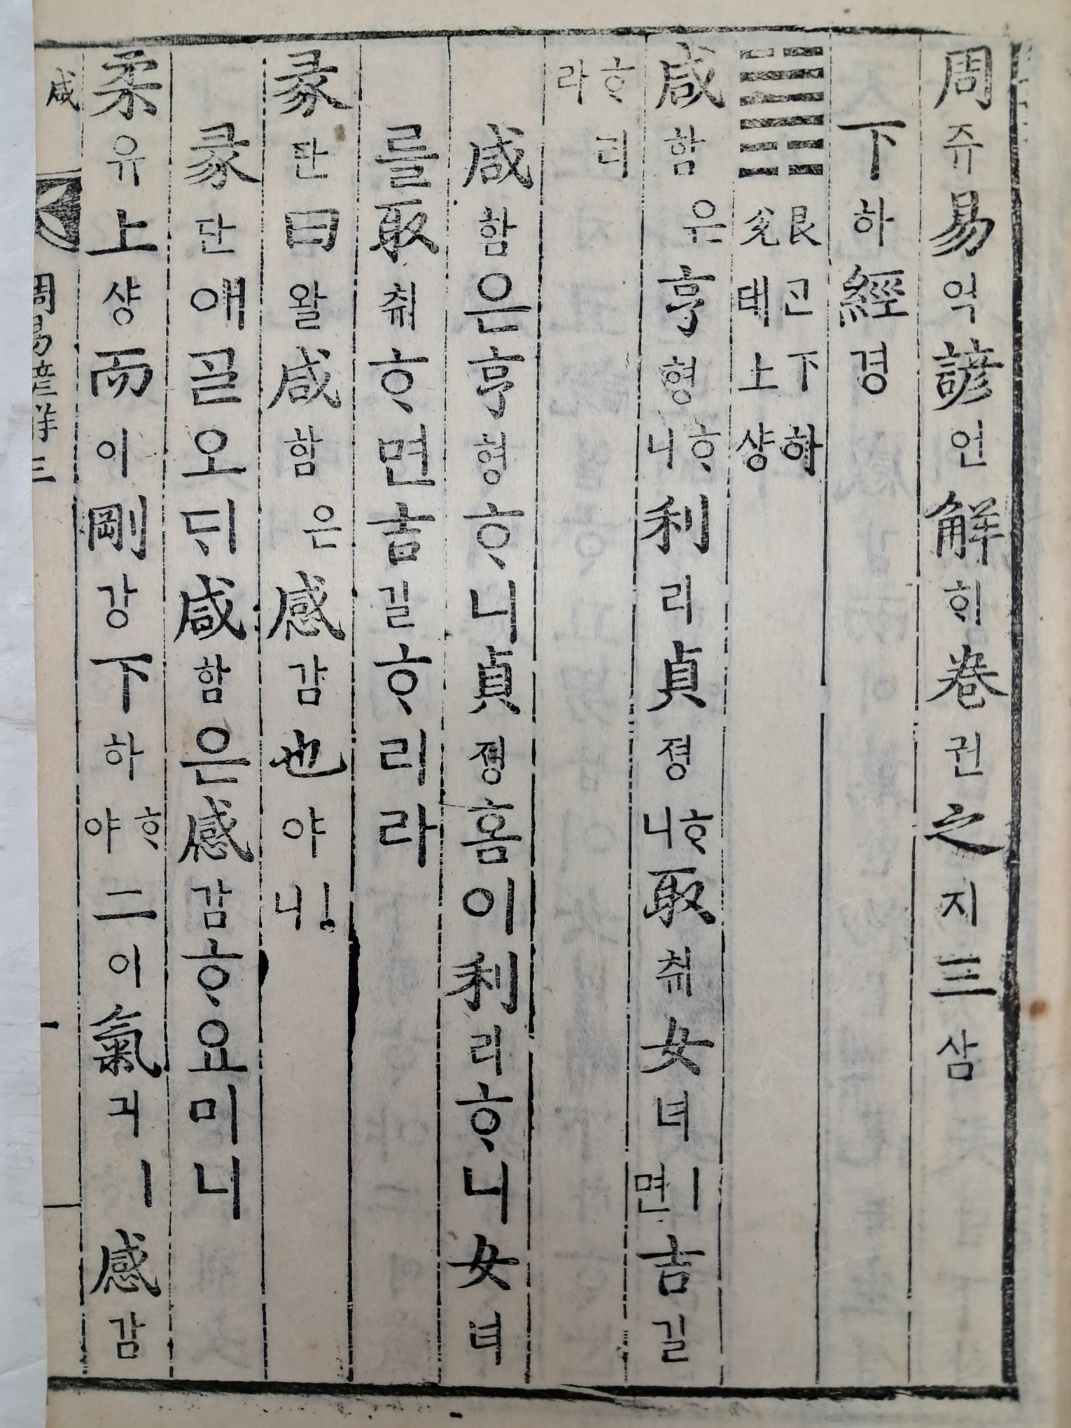 周쥬易역諺언解ᄒᆡ卷권之지三삼
下하經경
䷞艮ᄀᆞᆫ下하兌태上샹
咸함은亨형ᄒᆞ니利리貞졍ᄒᆞ니取취女녀ㅣ면吉길
ᄒᆞ리라
咸함은亨형ᄒᆞ니貞졍홈이利리ᄒᆞ니女녀
를取취ᄒᆞ면吉길ᄒᆞ리라
彖단曰왈咸함은感감也야ㅣ니
彖단애ᄀᆞᆯ오ᄃᆡ咸함은感감홈이니
柔유上샹而이剛강下하ᄒᆞ야二이氣긔ㅣ感감
咸
周易諺解三
一